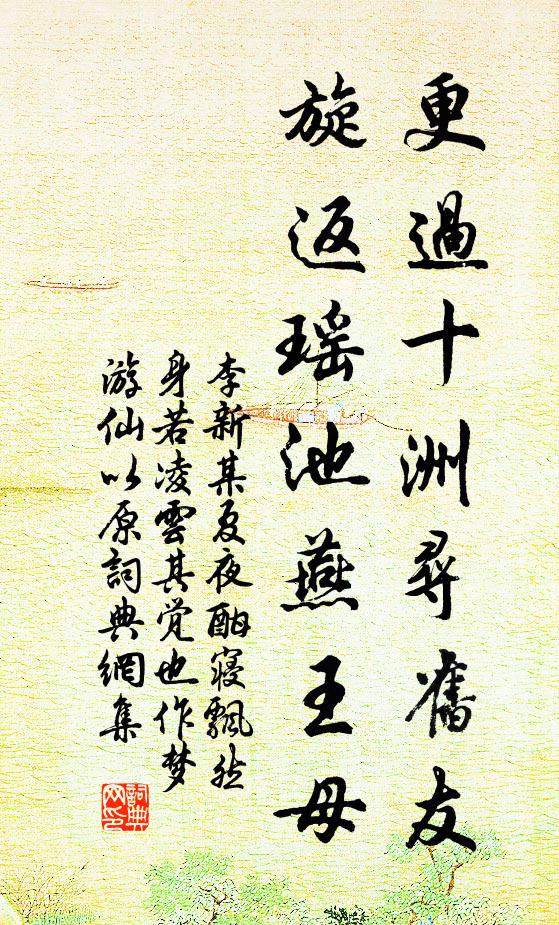 更過十洲尋舊友
旋返瑶池燕王母
李新某夏夜酣寝飄然
身若凌雲其覺也作梦
游仙以原詞典網集
詞典
网印